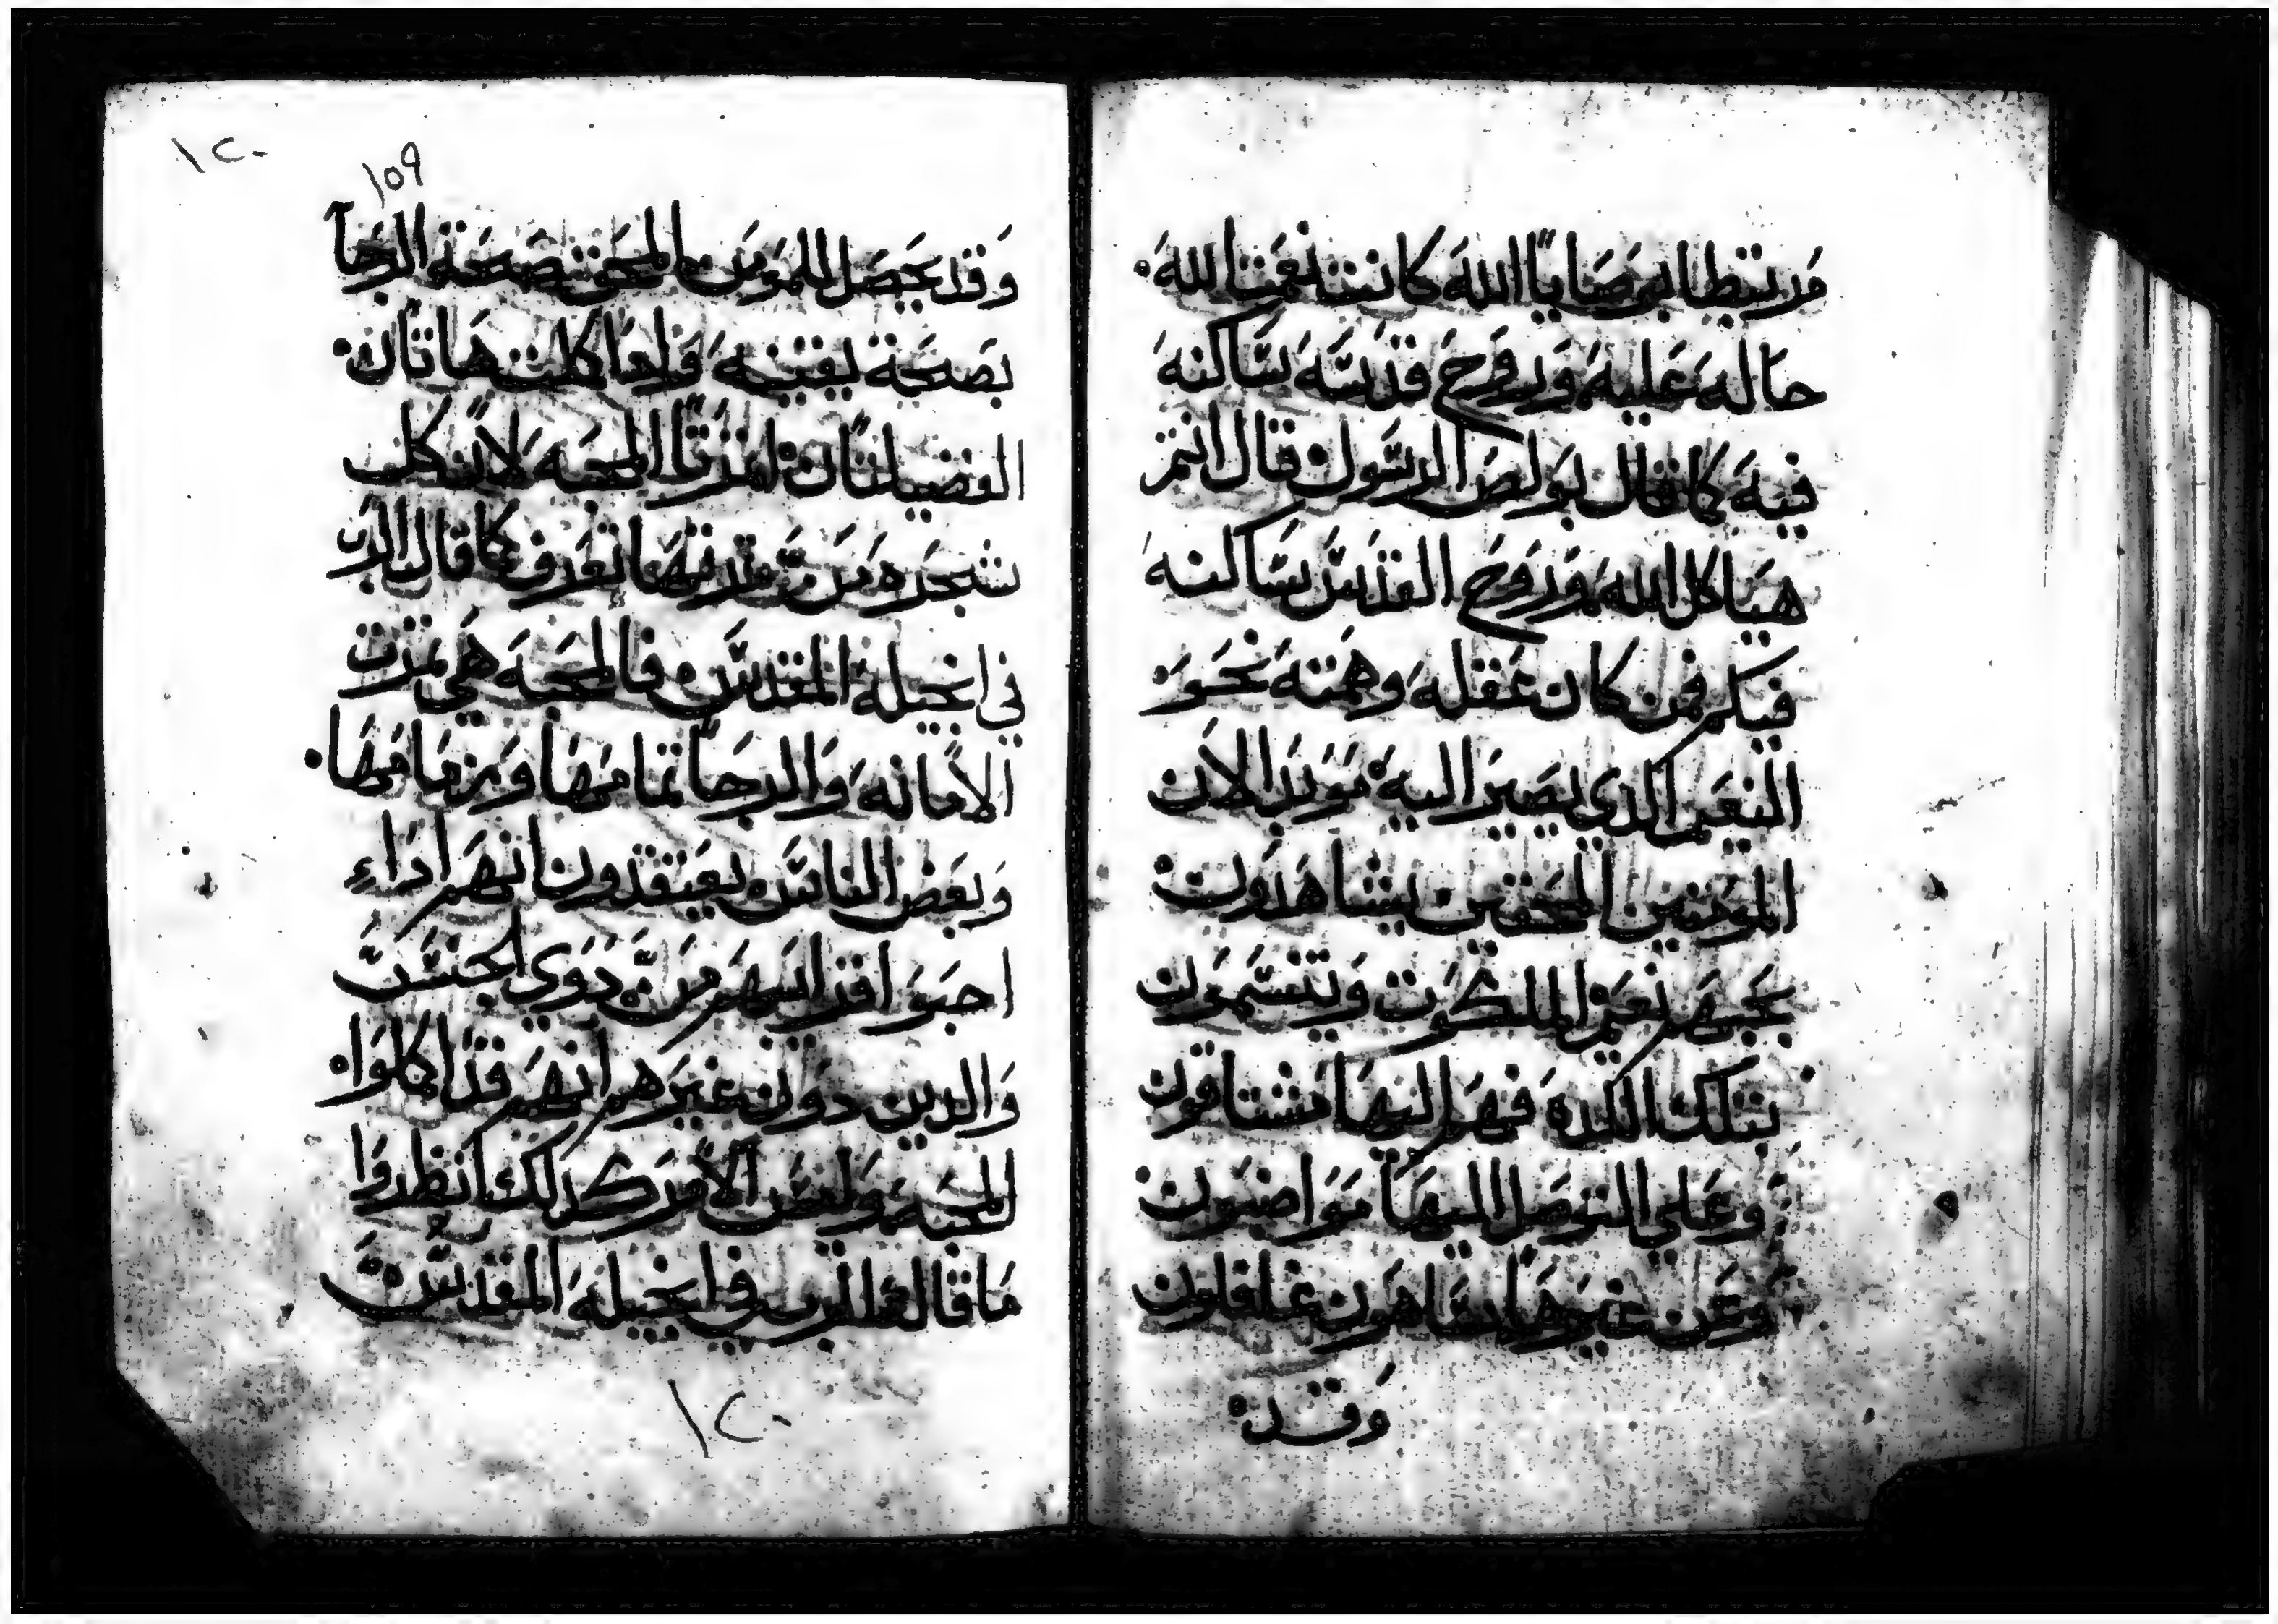 مرتبطا بوصايا الله كانت نعمة الله
حاله عليه وروح قدسه ساكنه
فيه كما قال بولص الرسول قال انتم
هياكل الله وروح القدس ساكنه
فيكم فمن كان عقله وهمته نحو
النعيم الذي يصير اليه موبدا لان
المومنين المحقين يشاهدون
بحبهم نعيم الملكوت ويتنسمون
بتلك اللده فهم اليها مشتاقون
وعلي التوصل اليها مواضبون
وعن غيرها ساهون غافلون
وقد
١٢٠
١٥٩
وقد يحصل للمومن المحق بصحة الرجا
بصحة يقينه وادا كملت هاتان
الفضيلتان اتمرتا المحبه لان كل
شجره من تمرتها تعرف كما قال الرب
في انجيله المقدس فالمحبه هي تمرت
الامانه والرجا تمامها وزمامها
وبعض الناس يعتقدون انهم اداء
احبوا اقرايبهم من دوي الجنس
والدين دون غيرهم انهم قد اكملوا
المحبه وليس الامر كدلك انظروا
ما قاله الرب في انجيله المقدس
١٢٠